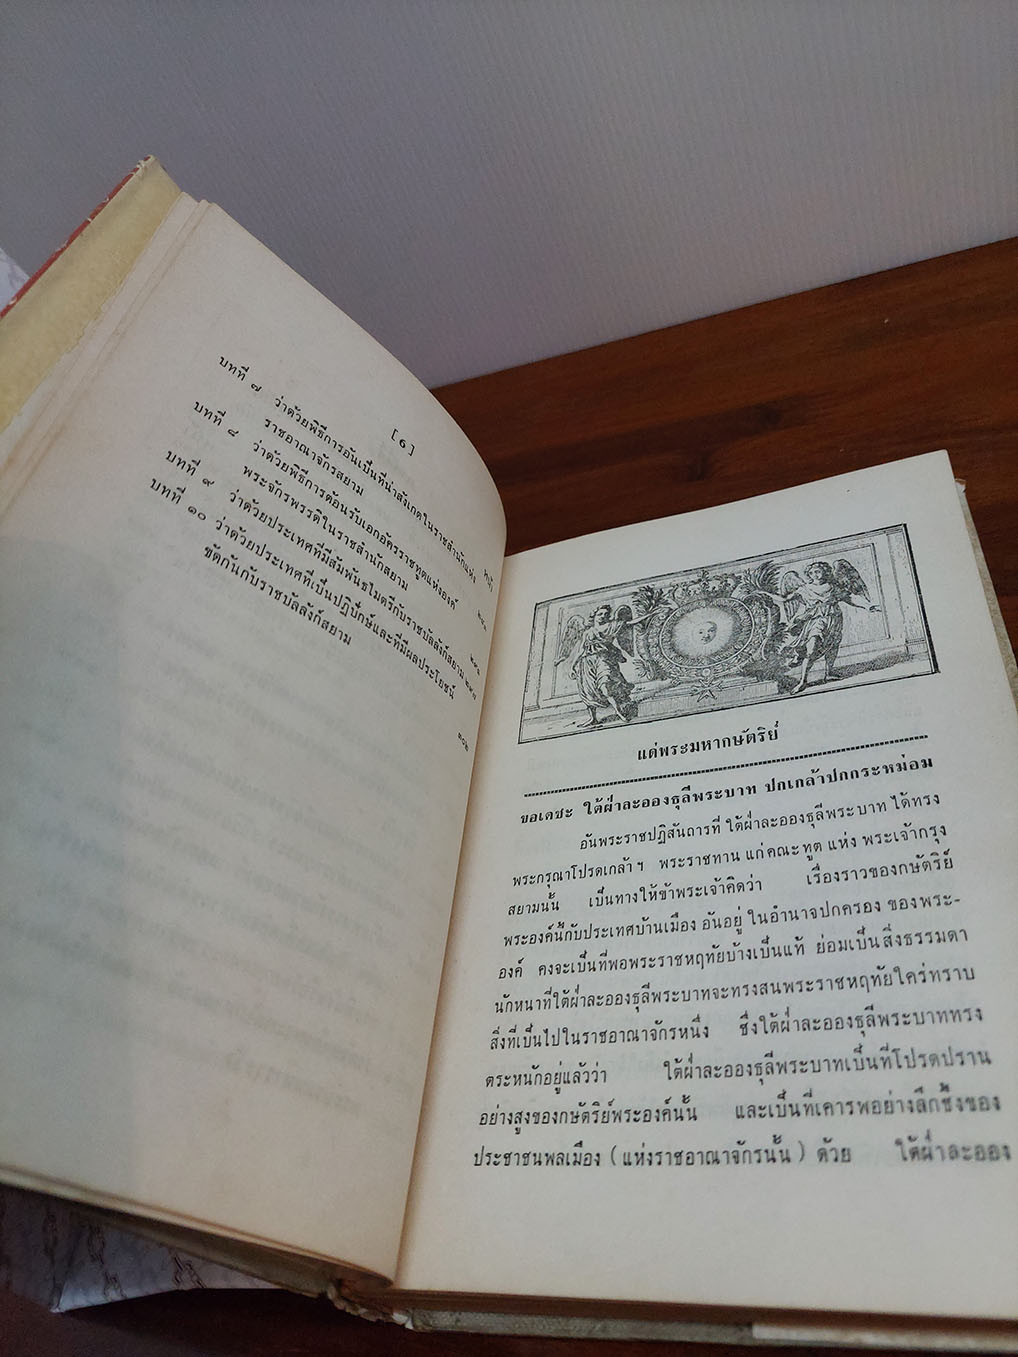 [ ๖ ]
หน้า
บทที่ ๗ ว่าด้วยพิธีการอันเป็นที่น่าสังเกตในราชสำนักแห่ง
ราชอาณาจักรสยาม
บทที่ ๘ ว่าด้วยพิธีการต้อนรับเอกอัครราชทูตแห่งองค์
พระจักรพรรดิในราชสำนักสยาม
บทที่ ๙ ว่าด้วยประเทศที่มีสัมพันธไมตรีกับราชบัลลังก์สยาม
บทที่ ๑๐ ว่าด้วยประเทศที่เป็นปฏิปักษ์และที่มีผลประโยชน์
ขัดกันกับราชบัลลังก์สยาม
แด่พระมหากษัตริย์
ขอเดชะ ใต้ฝ่าละอองธุลีพระบาท ปกเกล้าปกกระหม่อม
อันพระราชปฏิสันถารที่ ใต้ฝ่าละอองธุลีพระบาท ได้ทรง
พระกรุณาโปรดเกล้า ฯ พระราชทาน แก่คณะทูต แห่ง พระเจ้ากรุง
สยามนั้น เป็นทางให้ข้าพระเจ้าคิดว่า เรื่องราวของกษัตริย์
พระองค์นี้กับประเทศบ้านเมือง อันอยู่ ในอำนาจปกครอง ของพระ-
องค์ คงจะเป็นที่พอพระราชหฤทัยบ้างเป็นแท้ ย่อมเป็นสิ่งธรรมดา
นักหนาที่ใต้ฝ่าละอองธุลีพระบาทจะทรงสนพระราชหฤทัยใคร่ทราบ
สิ่งที่เป็นไปในราชอาณาจักรหนึ่ง ซึ่งใต้ฝ่าละอองธุลีพระบาททรง
ตระหนักอยู่แล้วว่า ใต้ฝ่าละอองธุลีพระบาทเป็นที่โปรดปราน
อย่างสูงของกษัตริย์พระองค์นั้น และเป็นที่เคารพอย่างลึกซึ้งของ
ประชาชนพลเมือง ( แห่งราชอาณาจักรนั้น ) ด้วย ใต้ฝ่าละออง